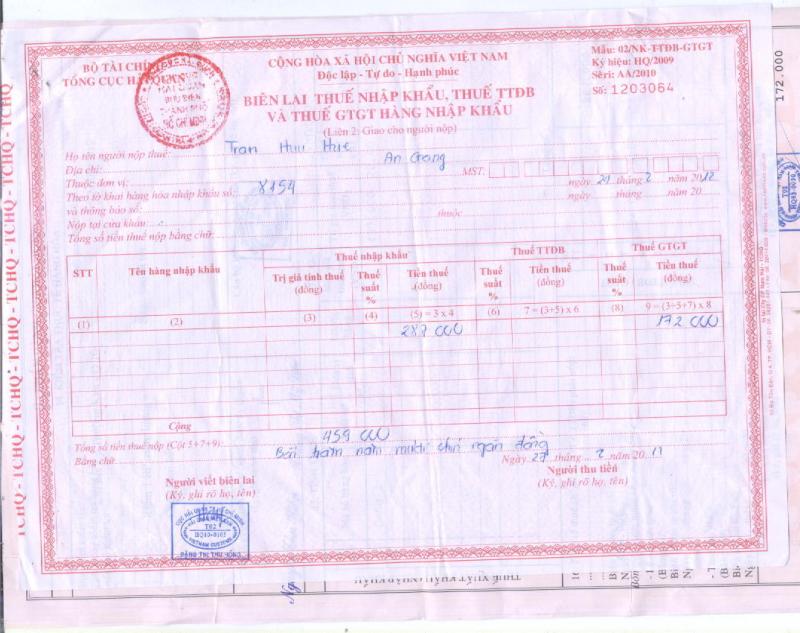 BỘ TÀI CHÍNH
TỔNG CỤC HẢI QUAN
CỘNG HÒA XÃ HỘI CHỦ NGHĨA VIỆT NAM
Độc lập - Tự do - Hạnh phúc
Mẫu: 02/NK-TTĐB-GTGT
Ký hiệu: HQ/2009
Sêri: AA/2010
Số: 1203064
BIÊN LAI THUẾ NHẬP KHẨU, THUẾ TTĐB
VÀ THUẾ GTGT HÀNG NHẬP KHẨU
(Liên 2: Giao cho người nộp)
Họ tên người nộp thuế: Tran Huu
Địa chỉ: An Giang
Thuộc đơn vị: MST:
Theo tờ khai hàng hóa nhập khẩu số: 8154 ngày 27 tháng 2 năm 2012
và thông báo số: ngày tháng năm 20
Nộp tại cửa khẩu: thuộc
Tổng số tiền thuế nộp bằng chữ:
STT Tên hàng nhập khẩu Thuế nhập khẩu Thuế TTĐB Thuế GTGT
Trị giá tính thuế (đồng) Thuế suất % Tiền thuế (đồng) Thuế suất % Tiền thuế (đồng) Thuế suất % Tiền thuế (đồng)
(1) (2) (3) (4) (5) = 3 x 4 (6) 7 = (3+5) x 6 (8) 9 = (3+5+7) x 8
287 000 172 000
Cộng
Tổng số tiền thuế nộp (Cột 5+7+9): 459 000
Bằng chữ: Bốn trăm năm mươi chín ngàn đồng
Ngày 27 tháng 2 năm 2011
Người viết biên lai
(Ký, ghi rõ họ, tên)
Người thu tiền
(Ký, ghi rõ họ, tên)
T02
HQ10-0103
ĐẶNG THỊ THU HỒNG
TCHQ - TCHQ - TCHQ - TCHQ - TCHQ - TCHQ - TCHQ
172.000
THUẾ XUẤT KHẨU, NHẬP KHẨU